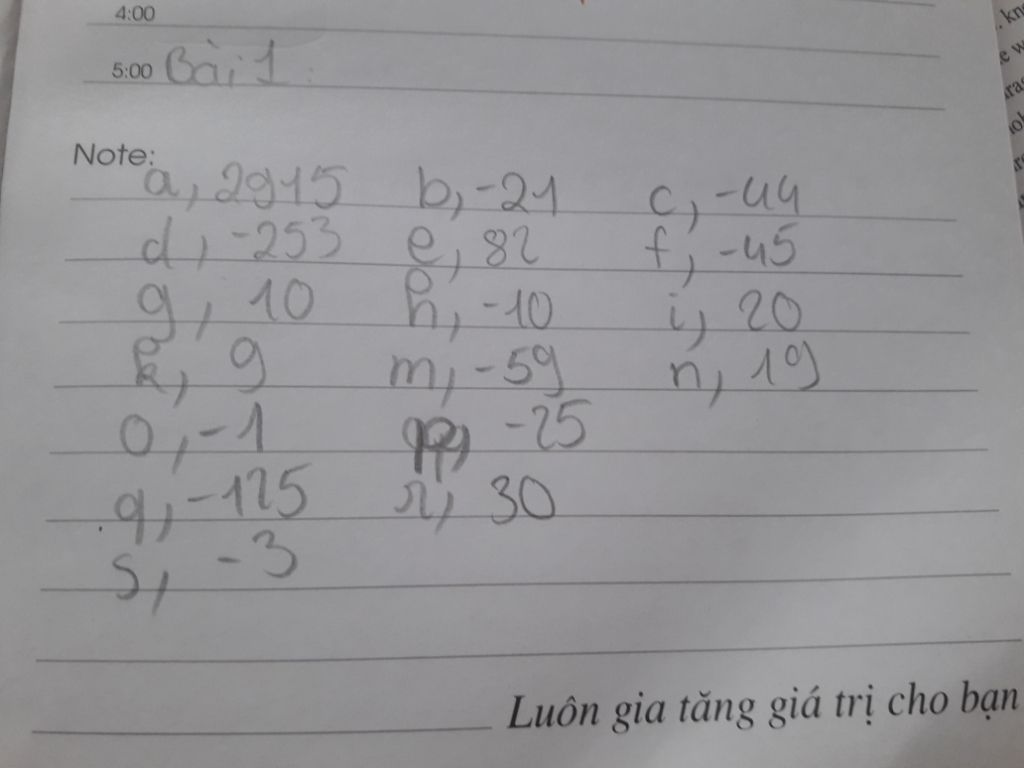 4:00
5:00 Bài 1:
Note:
a, 2915 b, -21 c, -44
d, -253 e, 82 f, -45
g, 10 h, -10 i, 20
k, 9 m, -59 n, 19
o, -1 p, -25
q, -125 r, 30
s, -3
Luôn gia tăng giá trị cho bạn